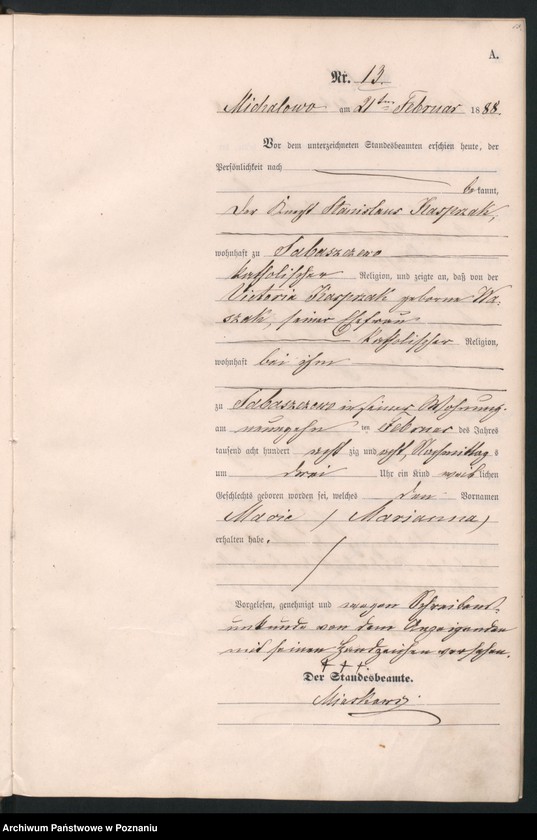 A.
Nr. 13.
Michalowo am 21ten Februar 1888.
Vor dem unterzeichneten Standesbeamten erschien heute, der
Persönlichkeit nach
bekannt,
der Knecht Stanislaus Kasprzak,
wohnhaft zu Tabaszewo
katholischer Religion, und zeigte an, daß von der
Victoria Kasprzak geborne Wa-
szak, seiner Ehefrau
katholischer Religion,
wohnhaft bei ihm
zu Tabaszewo in seiner Wohnung
am neunzehn ten Februar des Jahres
tausend acht hundert acht zig und acht, Nachmittags
um drei Uhr ein Kind weiblichen
Geschlechts geboren worden sei, welches den Vornamen
Marie (Marianna)
erhalten habe.
Vorgelesen, genehmigt und wegen Schreibens
unkunde von dem Anzeigenden
mit seinem Handzeichen versehen.
+ + +
Der Standesbeamte.
Archiwum Państwowe w Poznaniu